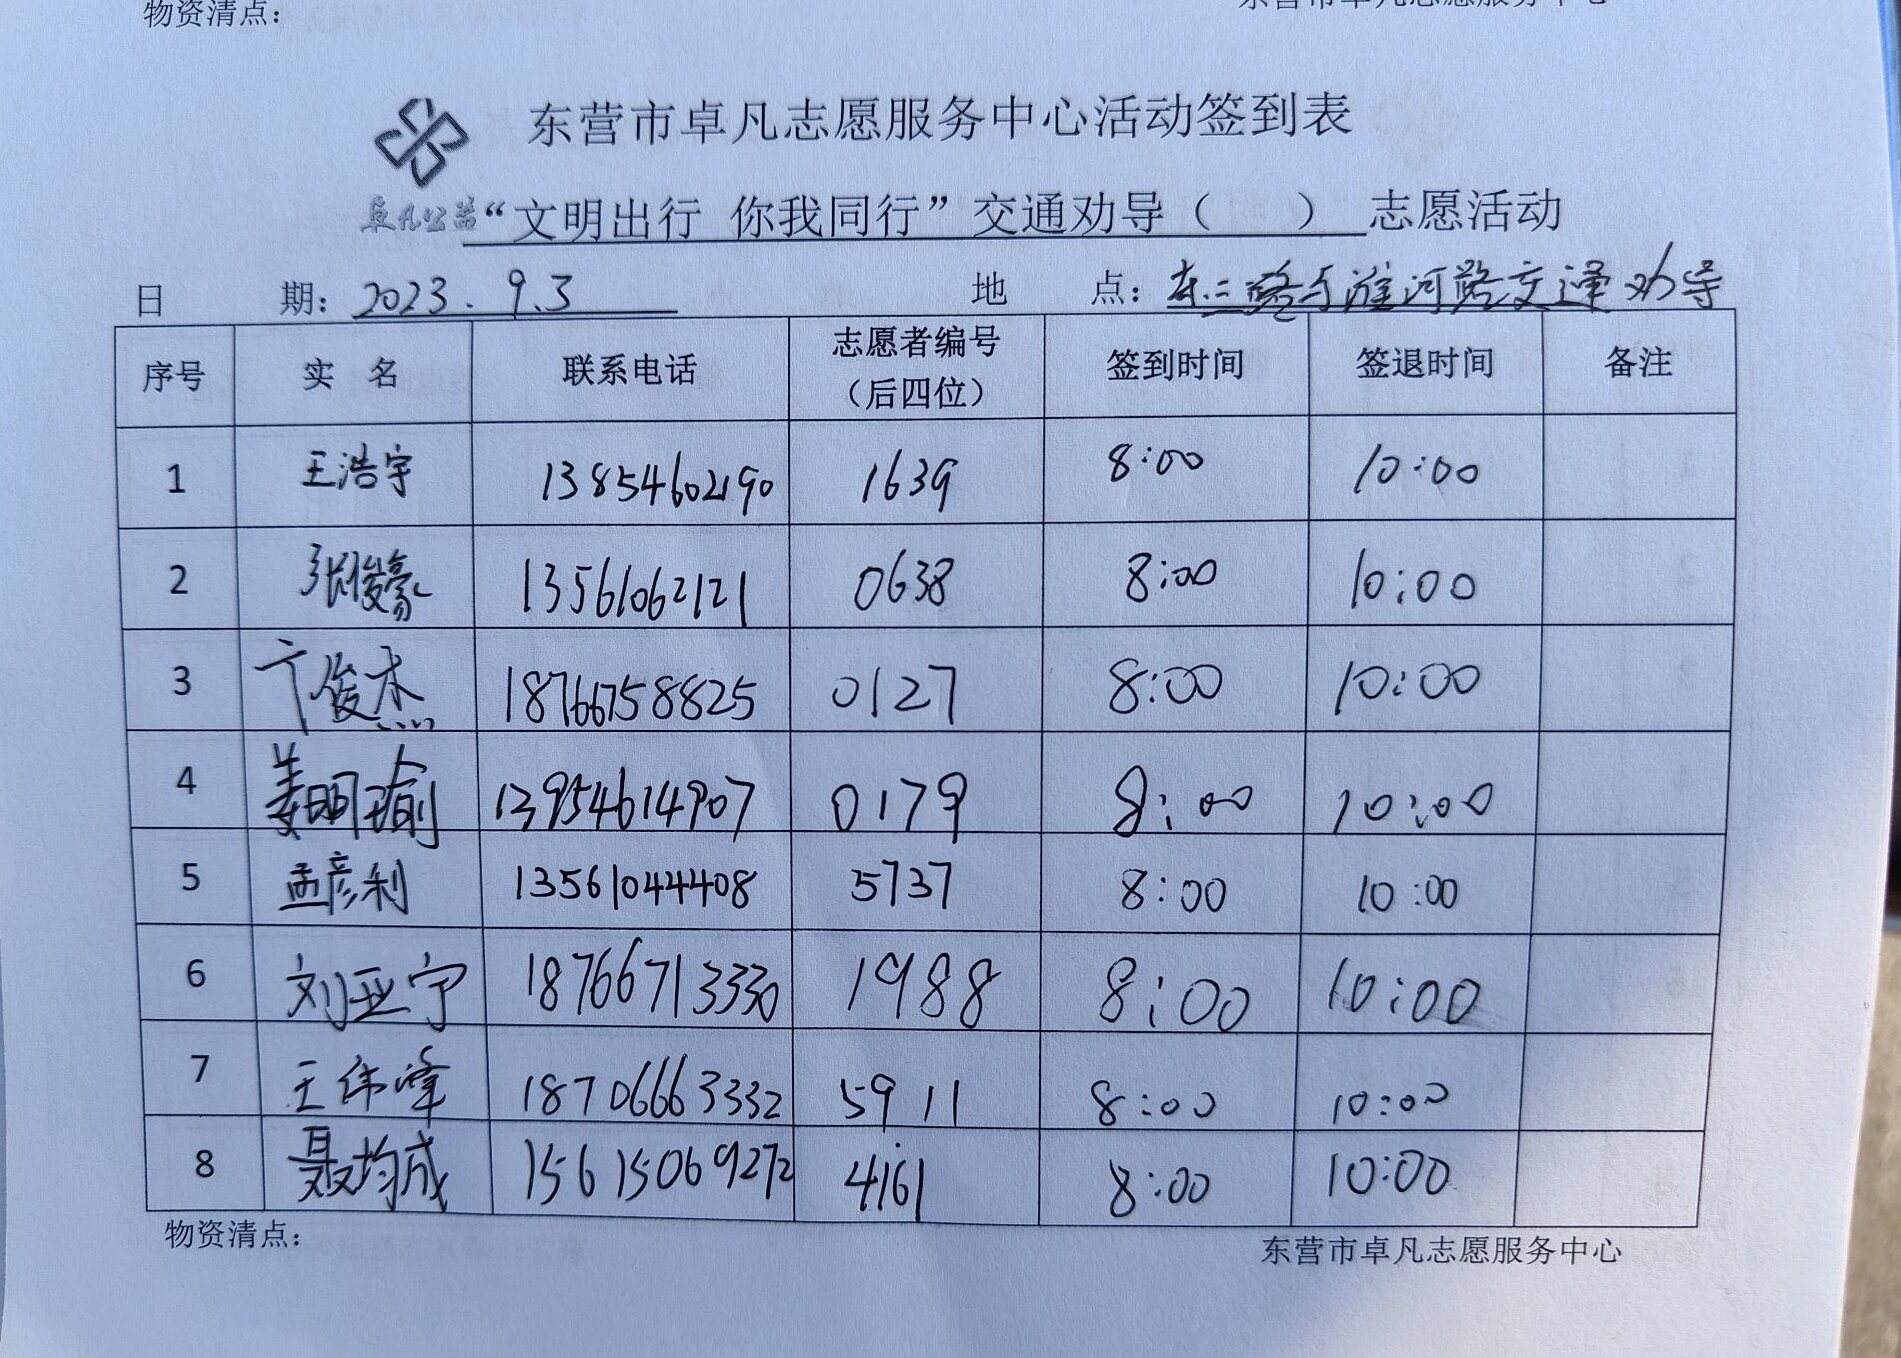 物资清点：
东营市卓凡志愿服务中心
东营市卓凡志愿服务中心活动签到表
卓凡公益
“文明出行 你我同行”交通劝导（ ） 志愿活动
日 期：2023.9.3 地 点：东二路与淮河路交通劝导
序号 实 名 联系电话 志愿者编号（后四位） 签到时间 签退时间 备注
1 王浩宇 13854602190 1639 8:00 10:00
2 张俊豪 13561062121 0638 8:00 10:00
3 卞俊杰 18766758825 0127 8:00 10:00
4 姜明瑜 13954614907 0179 8:00 10:00
5 孟彦利 13561044408 5737 8:00 10:00
6 刘亚宁 18766713330 1988 8:00 10:00
7 王伟峰 18706663332 5911 8:00 10:00
8 聂均成 15615069272 4161 8:00 10:00
物资清点：
东营市卓凡志愿服务中心